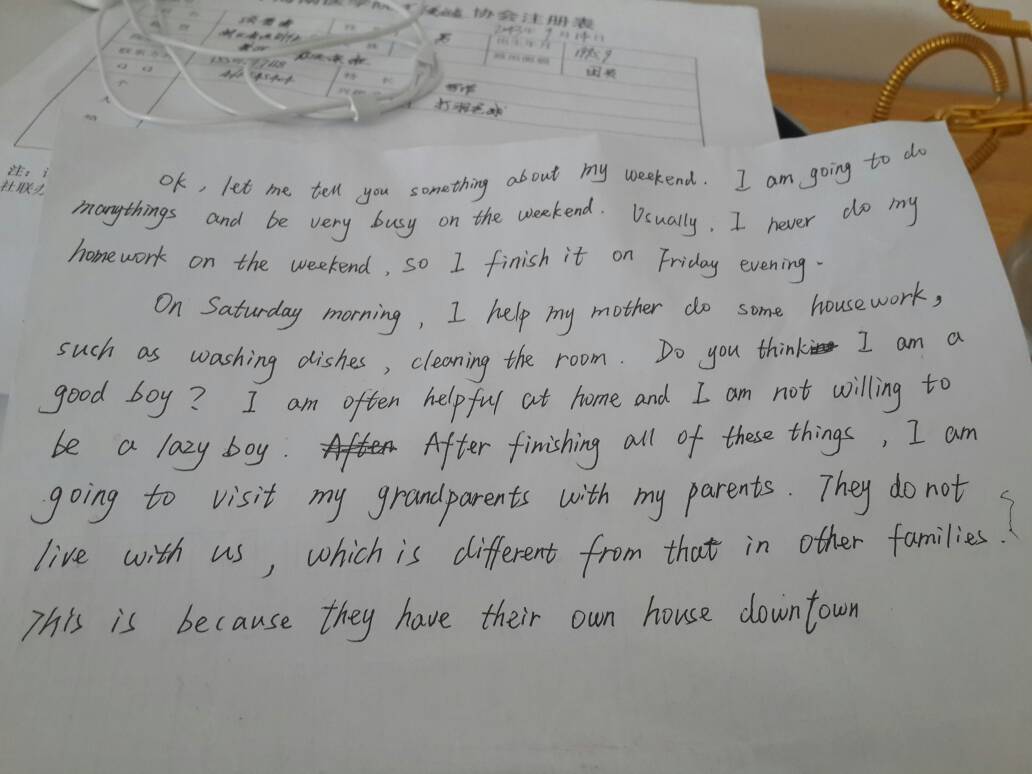 协会注册表
ok, let me tell you something about my weekend. I am going to do
manythings and be very busy on the weekend. Usually, I never do my
homework on the weekend, so I finish it on Friday evening.
On Saturday morning, I help my mother do some housework,
such as washing dishes, cleaning the room. Do you think I am a
good boy? I am often helpful at home and I am not willing to
be a lazy boy. After After finishing all of these things, I am
going to visit my grandparents with my parents. They do not
live with us, which is different from that in other families.
This is because they have their own house downtown